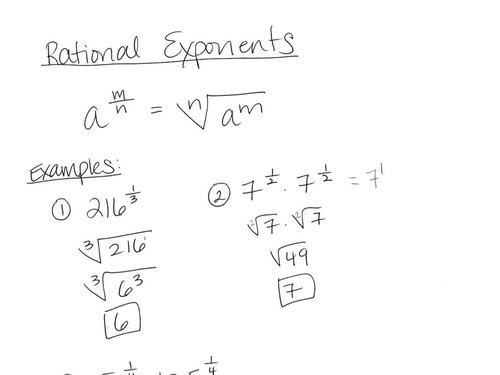 Rational Exponents
a^(m/n) = ⁿ√(a^m)
Examples:
① 216^(1/3)
³√216
³√6³
6
② 7^(1/2) · 7^(1/2) = 7¹
²√7 · ²√7
√49
7